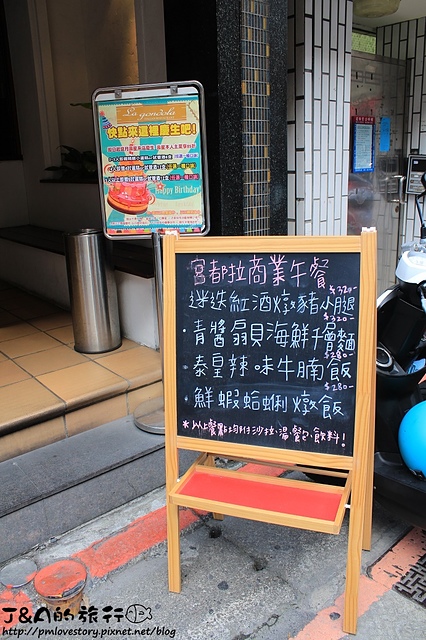 La gondola
快點來這裡慶生吧!
Happy Birthday!
宮都拉商業午餐
$320-
迷迭紅酒燉豬小腿
$320-
·青醬扇貝海鮮千層麵
$280-
·泰皇辣味牛腩飯
$280-
·鮮蝦蛤蜊燉飯
*以上餐點均附沙拉.湯.餐包.飲料!
J&A的旅行
http://pmlovestory.pixnet.net/blog